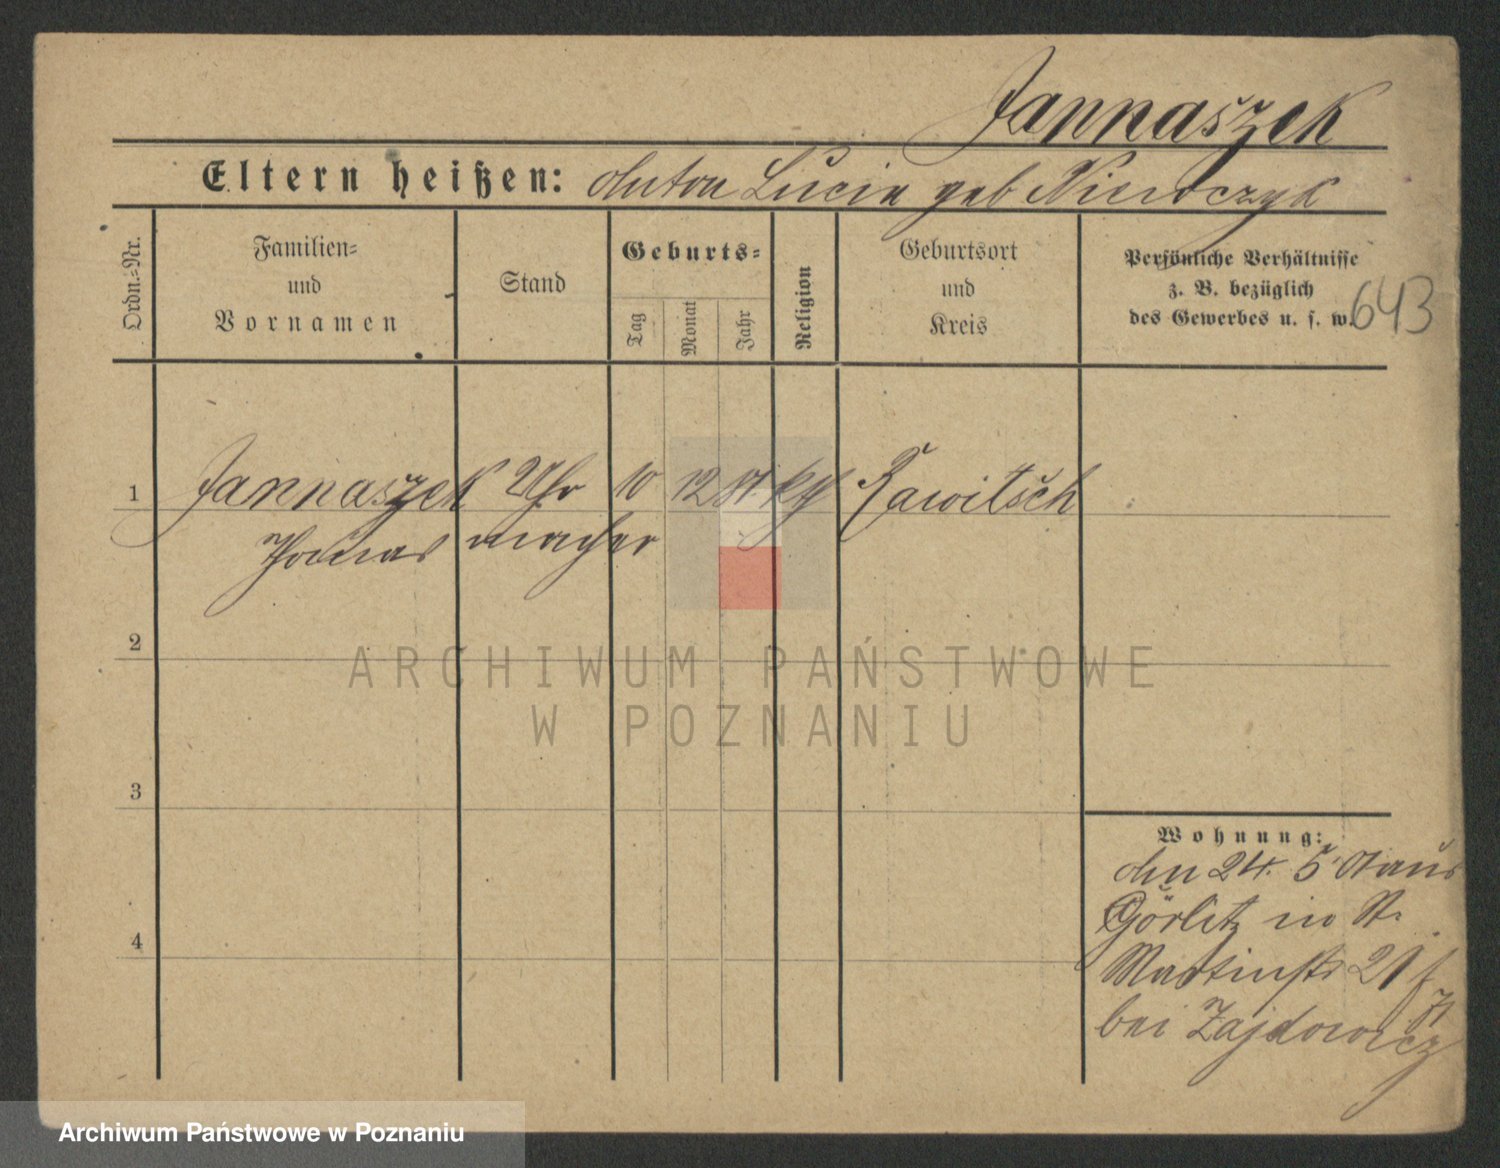 Jannaszek
Eltern heißen: Anton Lucia geb Nierwczyk
Ordn.=Nr.
Familien=
und
Vornamen
Stand
Geburts=
Tag
Monat
Jahr
Religion
Geburtsort
und
Kreis
Persönliche Verhältnisse
z. B. bezüglich
des Gewerbes u. s. w.
643
1 Jannaszek Uhr 10 12 kth Rawitsch
Thomas macher
2
3
4
Wohnung:
den 24. 5 aus
Görlitz in St.
Martinstr 21
bei Zajdowicz
ARCHIWUM PAŃSTWOWE
W POZNANIU
Archiwum Państwowe w Poznaniu